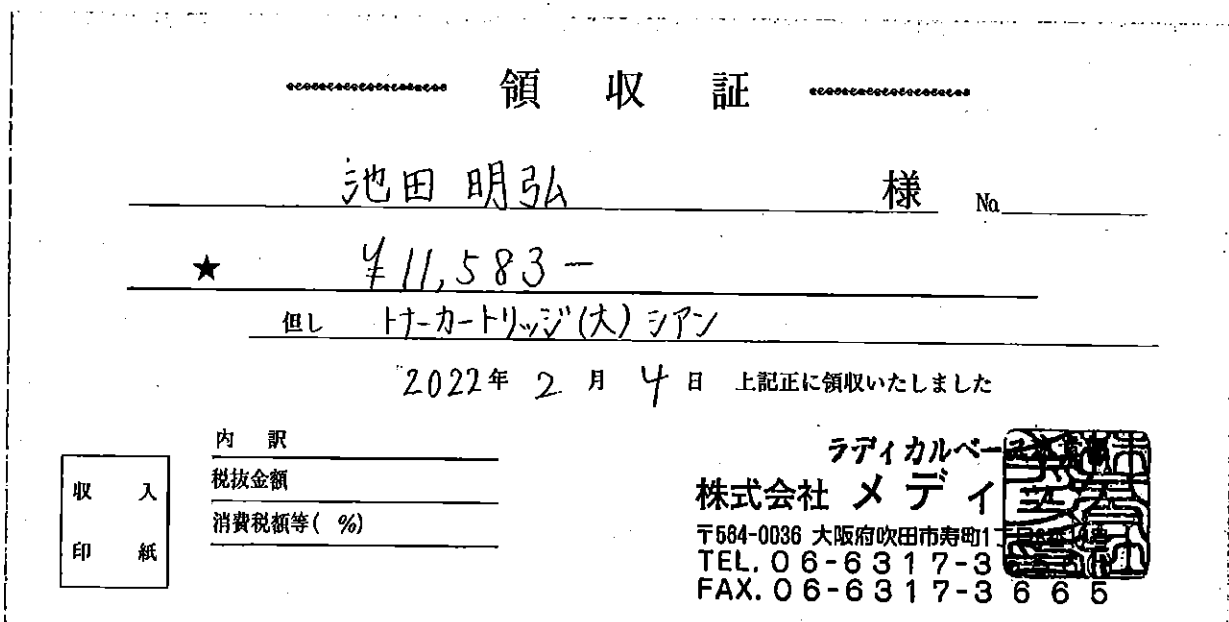 領収証
池田 明弘 様 No.
★ ¥11,583-
但し トナーカートリッジ(大)シアン
2022年 2月 4日 上記正に領収いたしました
内訳
税抜金額
消費税額等( %)
収入
印紙
ラディカルベース
株式会社 メディ
〒564-0036 大阪府吹田市寿町1
TEL. 06-6317-3
FAX. 06-6317-3665